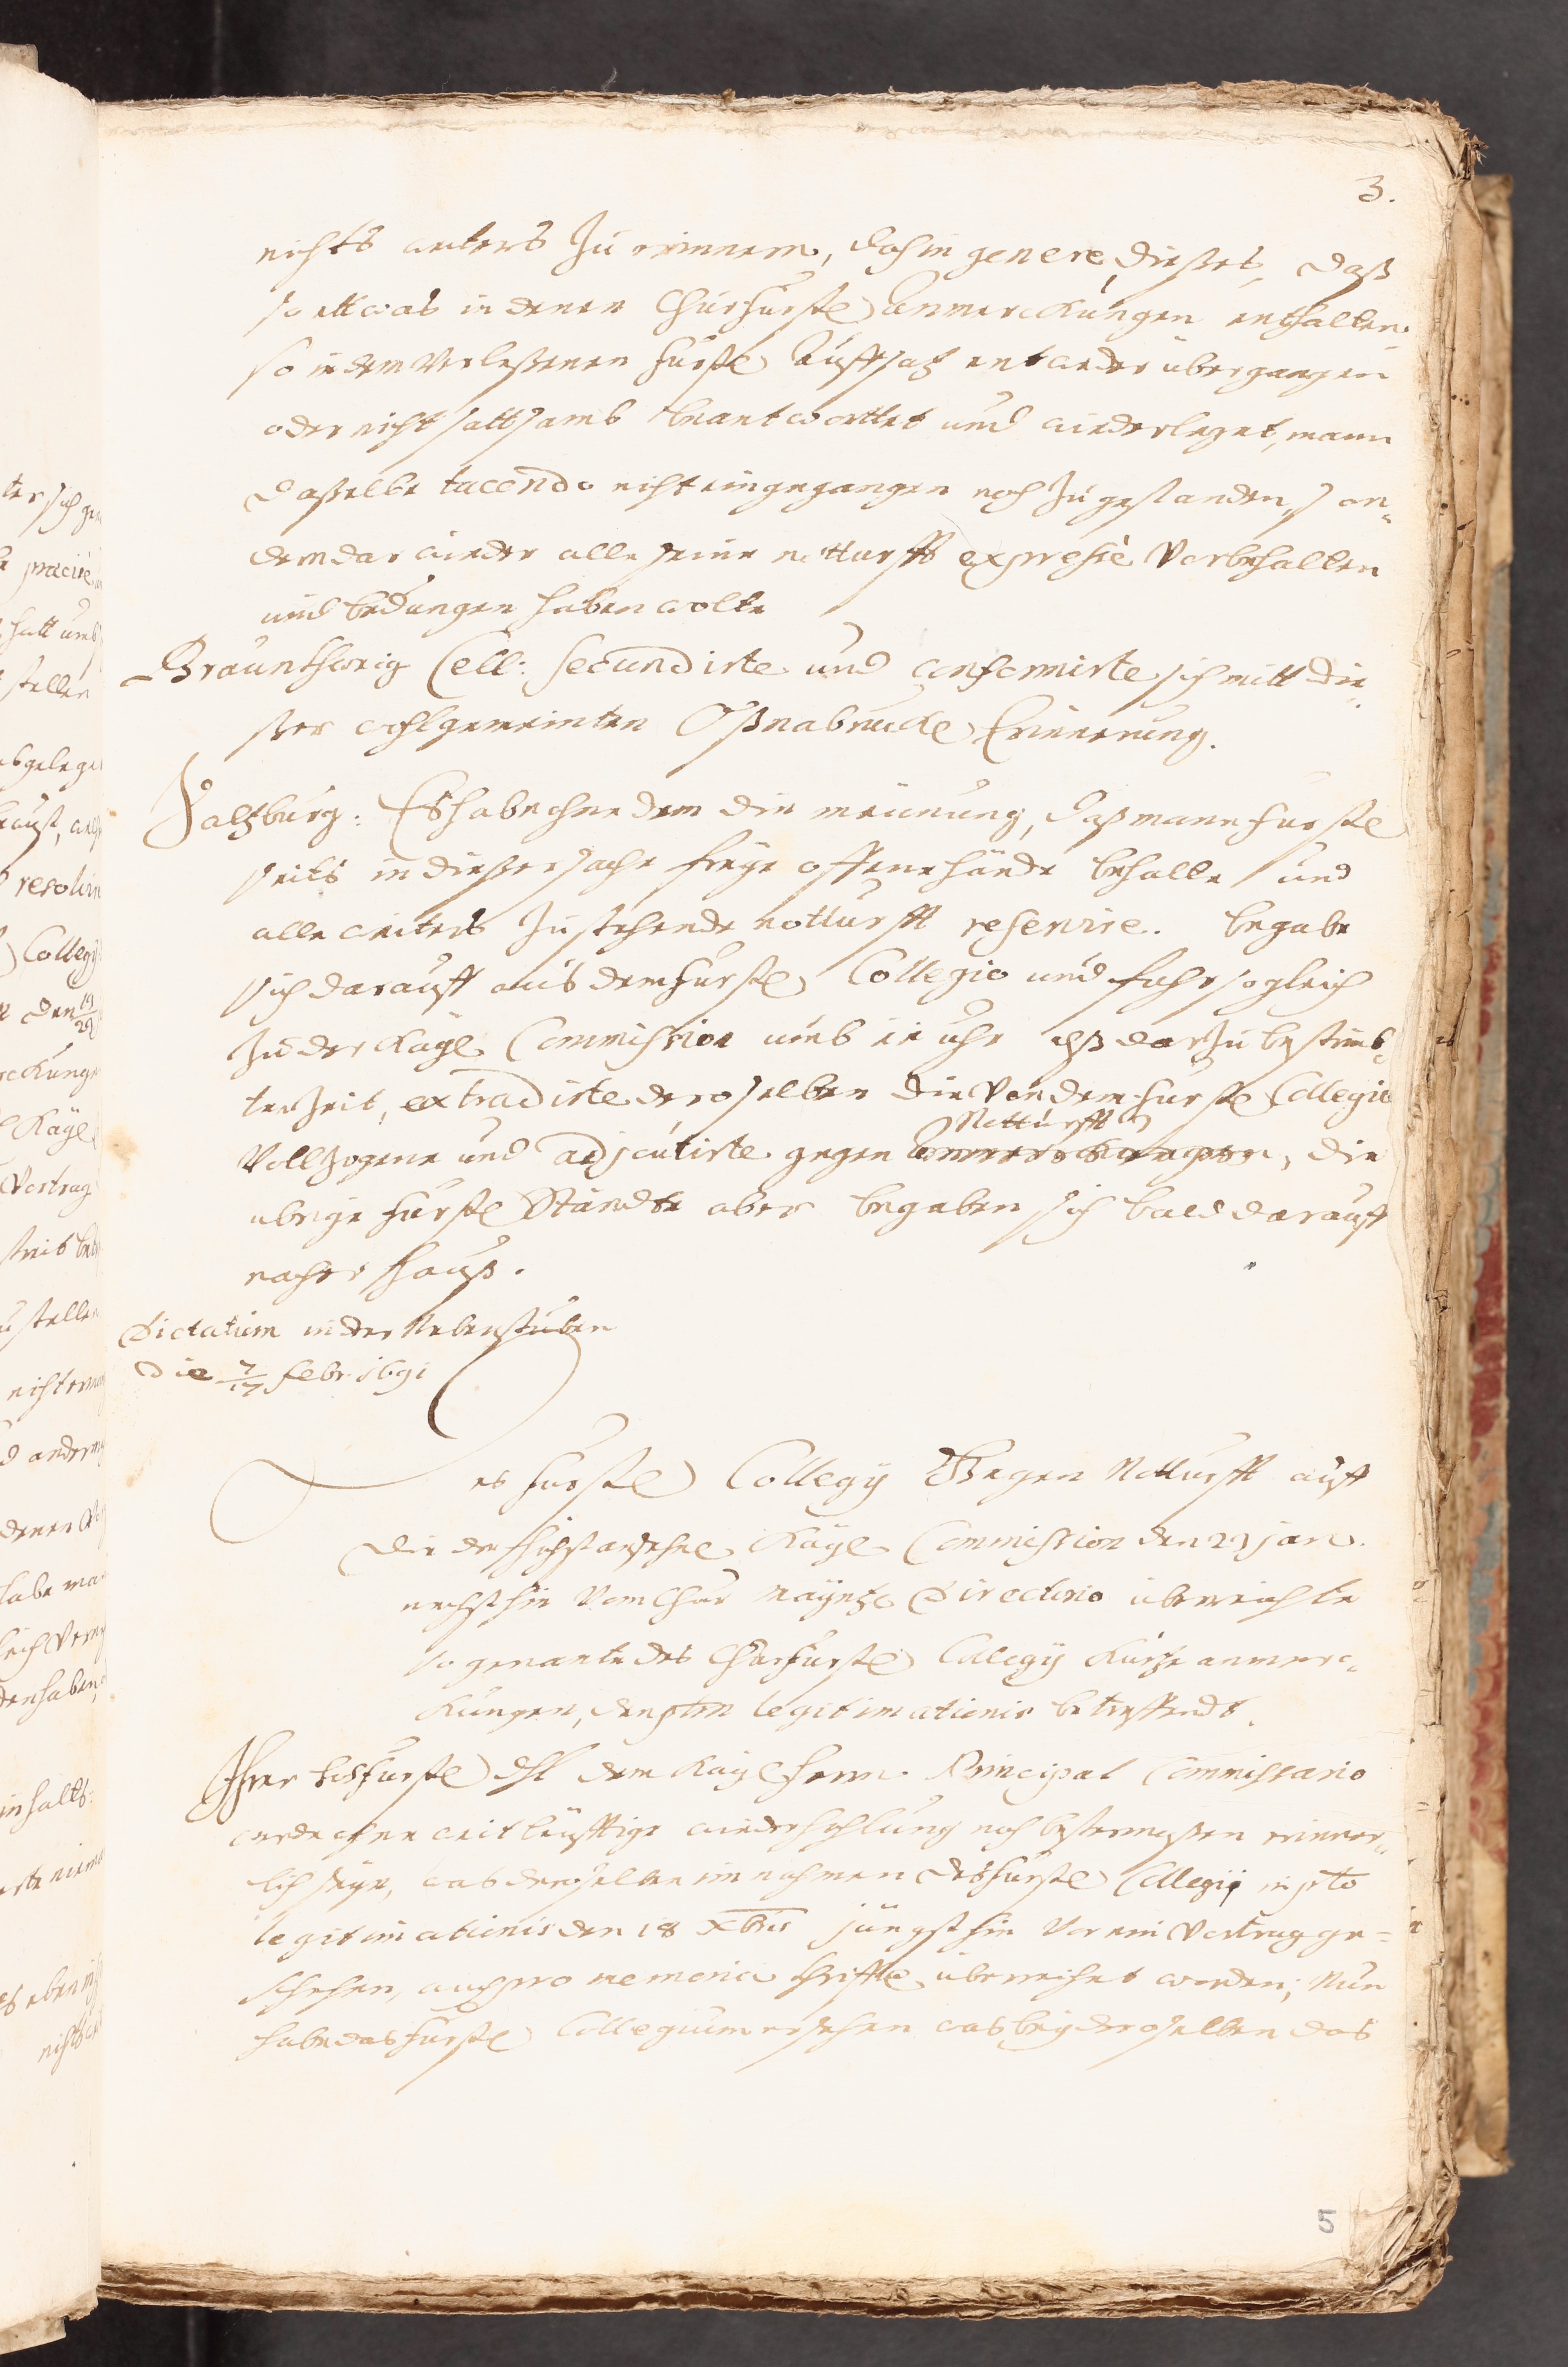 3.
nichts anders zu erinnern, doch in genere dießes, daß
so ettwas in denen Churfürstl. anmerckungen enthalten
so in dem verleßenen fürstl. Auffsatz entweder übergangen
oder nicht sattsamb beantworttet und wiederleget, mann
daßelbe tacendo nicht eingegangen noch zugestanden, son„
dern dar wieder alle seine notturfft expresse vorbehalten
und bedungen haben wolte
Braunschweig Cell: secundirte und conformirte sich mitt die„
ßer wohlgemeinten Oßnabruckl. Erinnerung.
Saltzburg: Es habe ohne dem die meinung, daß mann fürstl.
seits in dießer sache freye offene hände behalte und
alle weiters zustehende notturfft reservire. begabe
sich darauff aus dem fürstl. Collegio und fuhr sogleich
zu der Kayl. Commission umb 11 uhr alß darzu bestimb„
ter Zeit, extradirte deroselben die von dem fürstl. Collegio
Notturfft
vollzogene und adjoutirte gegen anmerckungen, die
übrige fürstl. Stände aber begaben sich bald darauff
nacher hauß.
Dictatum in der Nebenstuben
die 7/17 febr. 1691
Des fürstl. Collegij Gegen Notturfft auff
die der höchstansehnl. Kayl. Commission den 29 jan.
nechsthin vom Chur Mayntz. Directorio überreichte
so genante des Churfürstl. Collegij kurtze anmerc„
kungen, den pctum legitimationis betreffendt.
Ihrer hochfürstl. dhl. dem Kayl. herrn Principal Commissario
werde ohne weitläufftige wiederhohlung noch bestermaßen erinner„
lich seyn, was deroselben im nahmen des fürstl. Collegij in pcto
legitimationis den 18 Xbris jüngsthin vor ein Vortrag ge=
schehen, auch pro memoria schrifftl. überreichet worden; Nun
habe das fürstl. Collegium ersehen was bey deroselben das
5